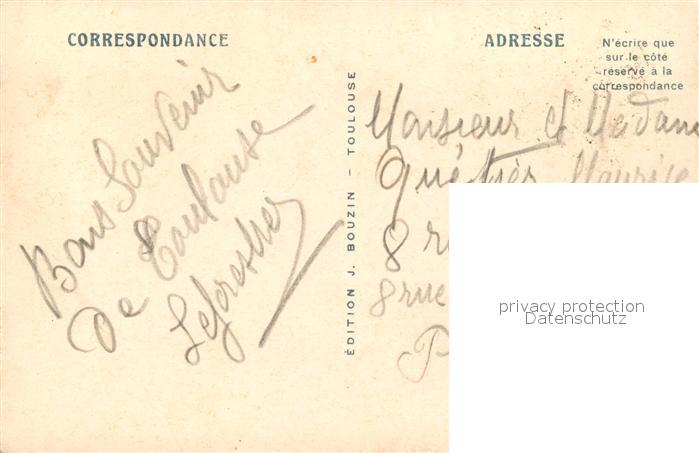 CORRESPONDANCE
Bons Souvenir
De Toulouse
ADRESSE
N'écrire que
sur le côté
réservé à la
correspondance
ÉDITION J. BOUZIN - TOULOUSE
Monsieur et Madame
Maurice
8
8 rue
P
privacy protection
Datenschutz